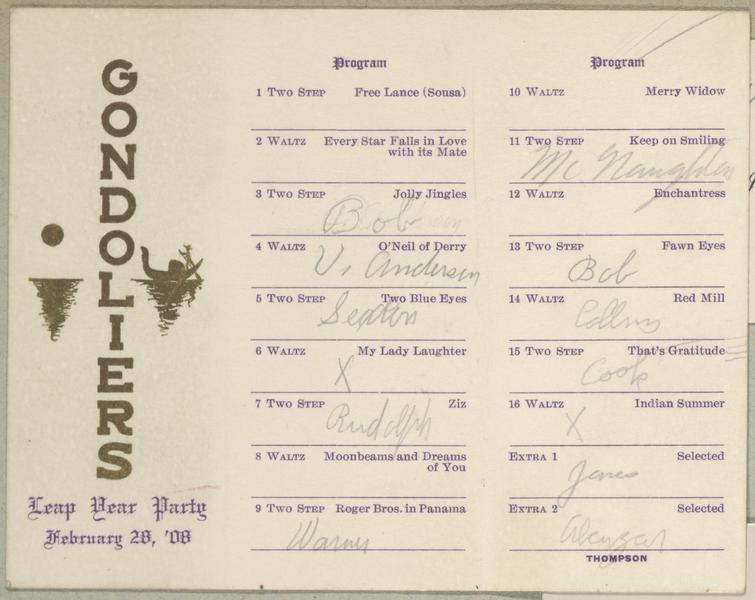 GONDOLIERS
Leap Year Party
February 28, '08
Program
1 TWO STEP Free Lance (Sousa)
2 WALTZ Every Star Falls in Love
with its Mate
3 TWO STEP Jolly Jingles
Bob
4 WALTZ O'Neil of Derry
V. Anderson
5 TWO STEP Two Blue Eyes
Sexton
6 WALTZ My Lady Laughter
X
7 TWO STEP Ziz
Rudolph
8 WALTZ Moonbeams and Dreams
of You
9 TWO STEP Roger Bros. in Panama
Warner
Program
10 WALTZ Merry Widow
11 TWO STEP Keep on Smiling
Mc Naughton
12 WALTZ Enchantress
13 TWO STEP Fawn Eyes
Bob
14 WALTZ Red Mill
Collins
15 TWO STEP That's Gratitude
Cook
16 WALTZ Indian Summer
X
EXTRA 1 Selected
Jones
EXTRA 2 Selected
THOMPSON